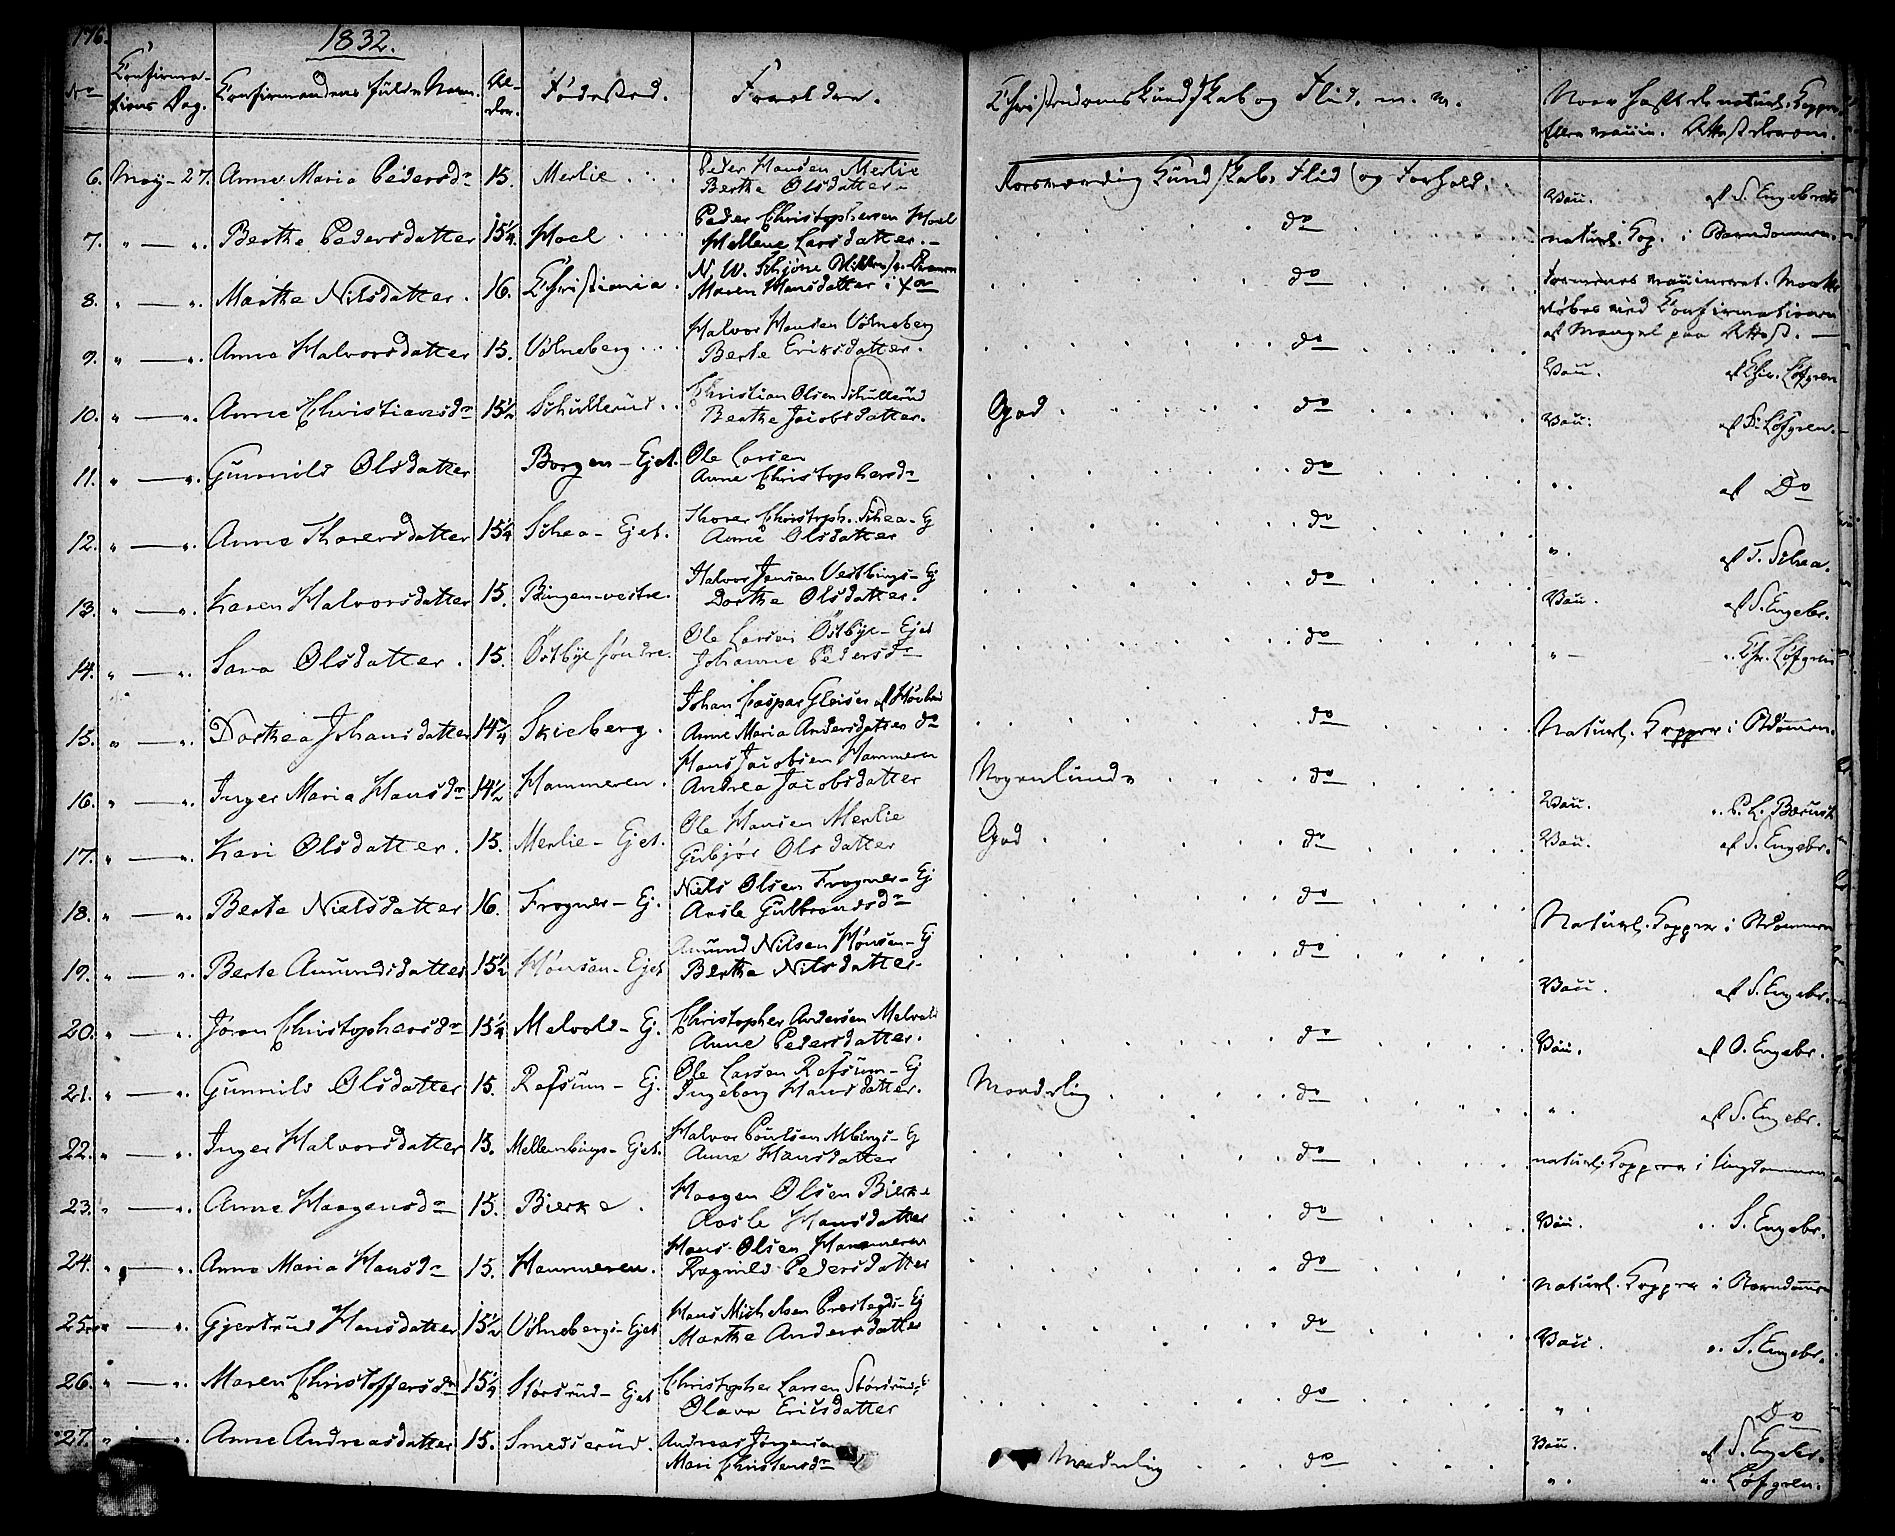 176.
1832.
No Confirma-
tions Dag. Confirmandens fulde Navn. Al-
der. Fødested. Forældre. Christendomskundskab og Flid. m. m. Naar havt de naturl. Kopper
eller vaccin. Attest derom.
6. May - 27. Anne Maria Pedersdr 15. Merlie Peder Hansen Merlie
Berthe Olsdatter Kundskab, Flid og Forhold. Vacc. af S. Engebrets
7. " — ". Berthe Pedersdatter 15¼ Hoel Peder Christophersen Hoel
Hellene Larsdatter. do naturl. Kop. i Barndommen.
8. " — ". Marthe Nilsdatter. 16. Christiania. N. W. Schjøne
Maren Hansdatter i Xa do vaccineret.
ved Confirmationen
af Mangel paa Attest.
9. " — ". Anne Halvorsdatter 15. Vølneberg Halvor Hansen Vølneberg
Berte Eriksdatter. do Vacc. af Chr. Löfgren
10. " — ". Anne Christiansdr 15½ Schullerud Christian Olsen Schullerud
Berthe Jacobsdatter. God do Vacc. af Löfgren.
11. " — ". Gunnild Olsdatter Borgen - Ejet. Ole Larsen
Anne Christophersdr do af Do
12. " — ". Anne Thorersdatter 15¼ Schea - Ejet. Thorer Christoph. Schea - Ej
Anne Olsdatter do ". af T. Schea.
13. " — ". Karen Halvorsdatter 15. Bingen - vestre. Halvor Jensen Vestbings - Ej
Dorthe Olsdatter. do Vacc. af S. Engebr.
14. " — ". Sara Olsdatter. 15. Østbye søndre. Ole Larsen Østbye - Ejet
Johanne Pedersdr do " — ". Chr. Löfgren
15. " — ". Dorthea Johansdatter 14¾ Skieberg. Johan Caspar Gleiser af
Anne Maria Andersdatter do do Naturl. Kopper i
16. " — ". Inger Maria Hansdr 14½ Hammeren. Hans Jacobsen Hammeren
Andrea Jacobsdatter Nogenlunde do Vacc. ". P. L.
17. " — ". Kari Olsdatter. 15. Merlie - Ejet. Ole Hansen Merlie
Gubjør Olsdatter God do Vacc. af S. Engebr.
18. " — ". Berte Nielsdatter 16. Frogner - Ej. Niels Olsen Frogner - Ej
Aasle Gulbrandsdr do Naturl. Kopper i
19. " — ". Berte Amundsdatter 15½ Hønsen - Ejet Amund Nilsen Hønsen - Ej
Berthe Nilsdatter. do Vacc. af S. Engebr.
20. " — ". Jøran Christophersdr 15¼ Melvold - Ej. Christopher Andersen Melvold
Anne Pedersdatter. do Vacc. af O. Engebr.
21. " — ". Gunnild Olsdatter 15. Refsum - Ej. Ole Larsen Refsum - Ej
Ingeborg Hansdatter. Maadelig do ". af S. Engebr.
22. " — ". Inger Halvorsdatter 15. Mellembings - Ejet. Halvor Poulsen Mbings - Ej
Anne Hansdatter do naturl. Kopper i Ungdommen
23. " — ". Anne Haagensdr 15. Bierke. Haagen Olsen Bierke
Aasle Hansdatter do Vacc. ". S. Engebr.
24. " — ". Anne Maria Hansdr 15. Hammeren. Hans Olsen Hammeren
Ragnild Pedersdatter do naturl. Kopper i Barndommen
25. " — ". Gjertrud Hansdatter 15½ Vølnebergs - Ejet Hans Michelsen Prestegds - Ej
Marthe Andersdatter do Vacc. ". S. Engebr.
26. " — ". Maren Christoffersdr 15¼ Størsrud - Ejet Christopher Larsen Størsrud
Olava Ericsdatter do " Do
27. " — ". Anne Andreasdatter 15. Smedserud. Andreas Jørgensen
Mari Christensdr Maadelig do Vacc. af S. Engebr.
". ". Löfgren.